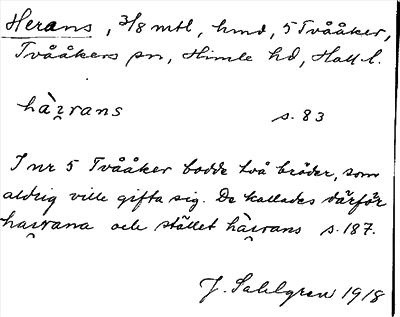 Herans, 3/8 mtl, hmd, 5 Tvååker,
Tvååkers sn, Himle hd, Hall l.
hàı̯rans s. 83
I nr 5 Tvååker bodde två bröder, som
aldrig ville gifta sig. De kallades därför
haı̯rana och stället hàı̯rans s. 187.
J. Sahlgren 1918